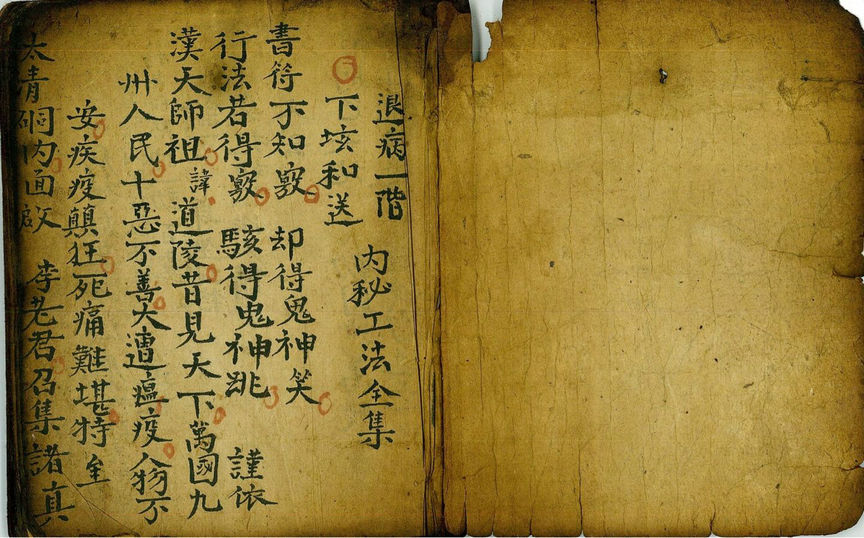 退病一階 內秘工法全集
下垓和送
書符不知竅 却得鬼神笑
行法若得竅 駭得鬼神跳 謹依
漢天師祖諱道陵昔見天下萬國九
州人民十惡不善大遭瘟疫人物不
安疾疫顛狂死痛難堪特
太青洞内面啟 李老君召集諸真